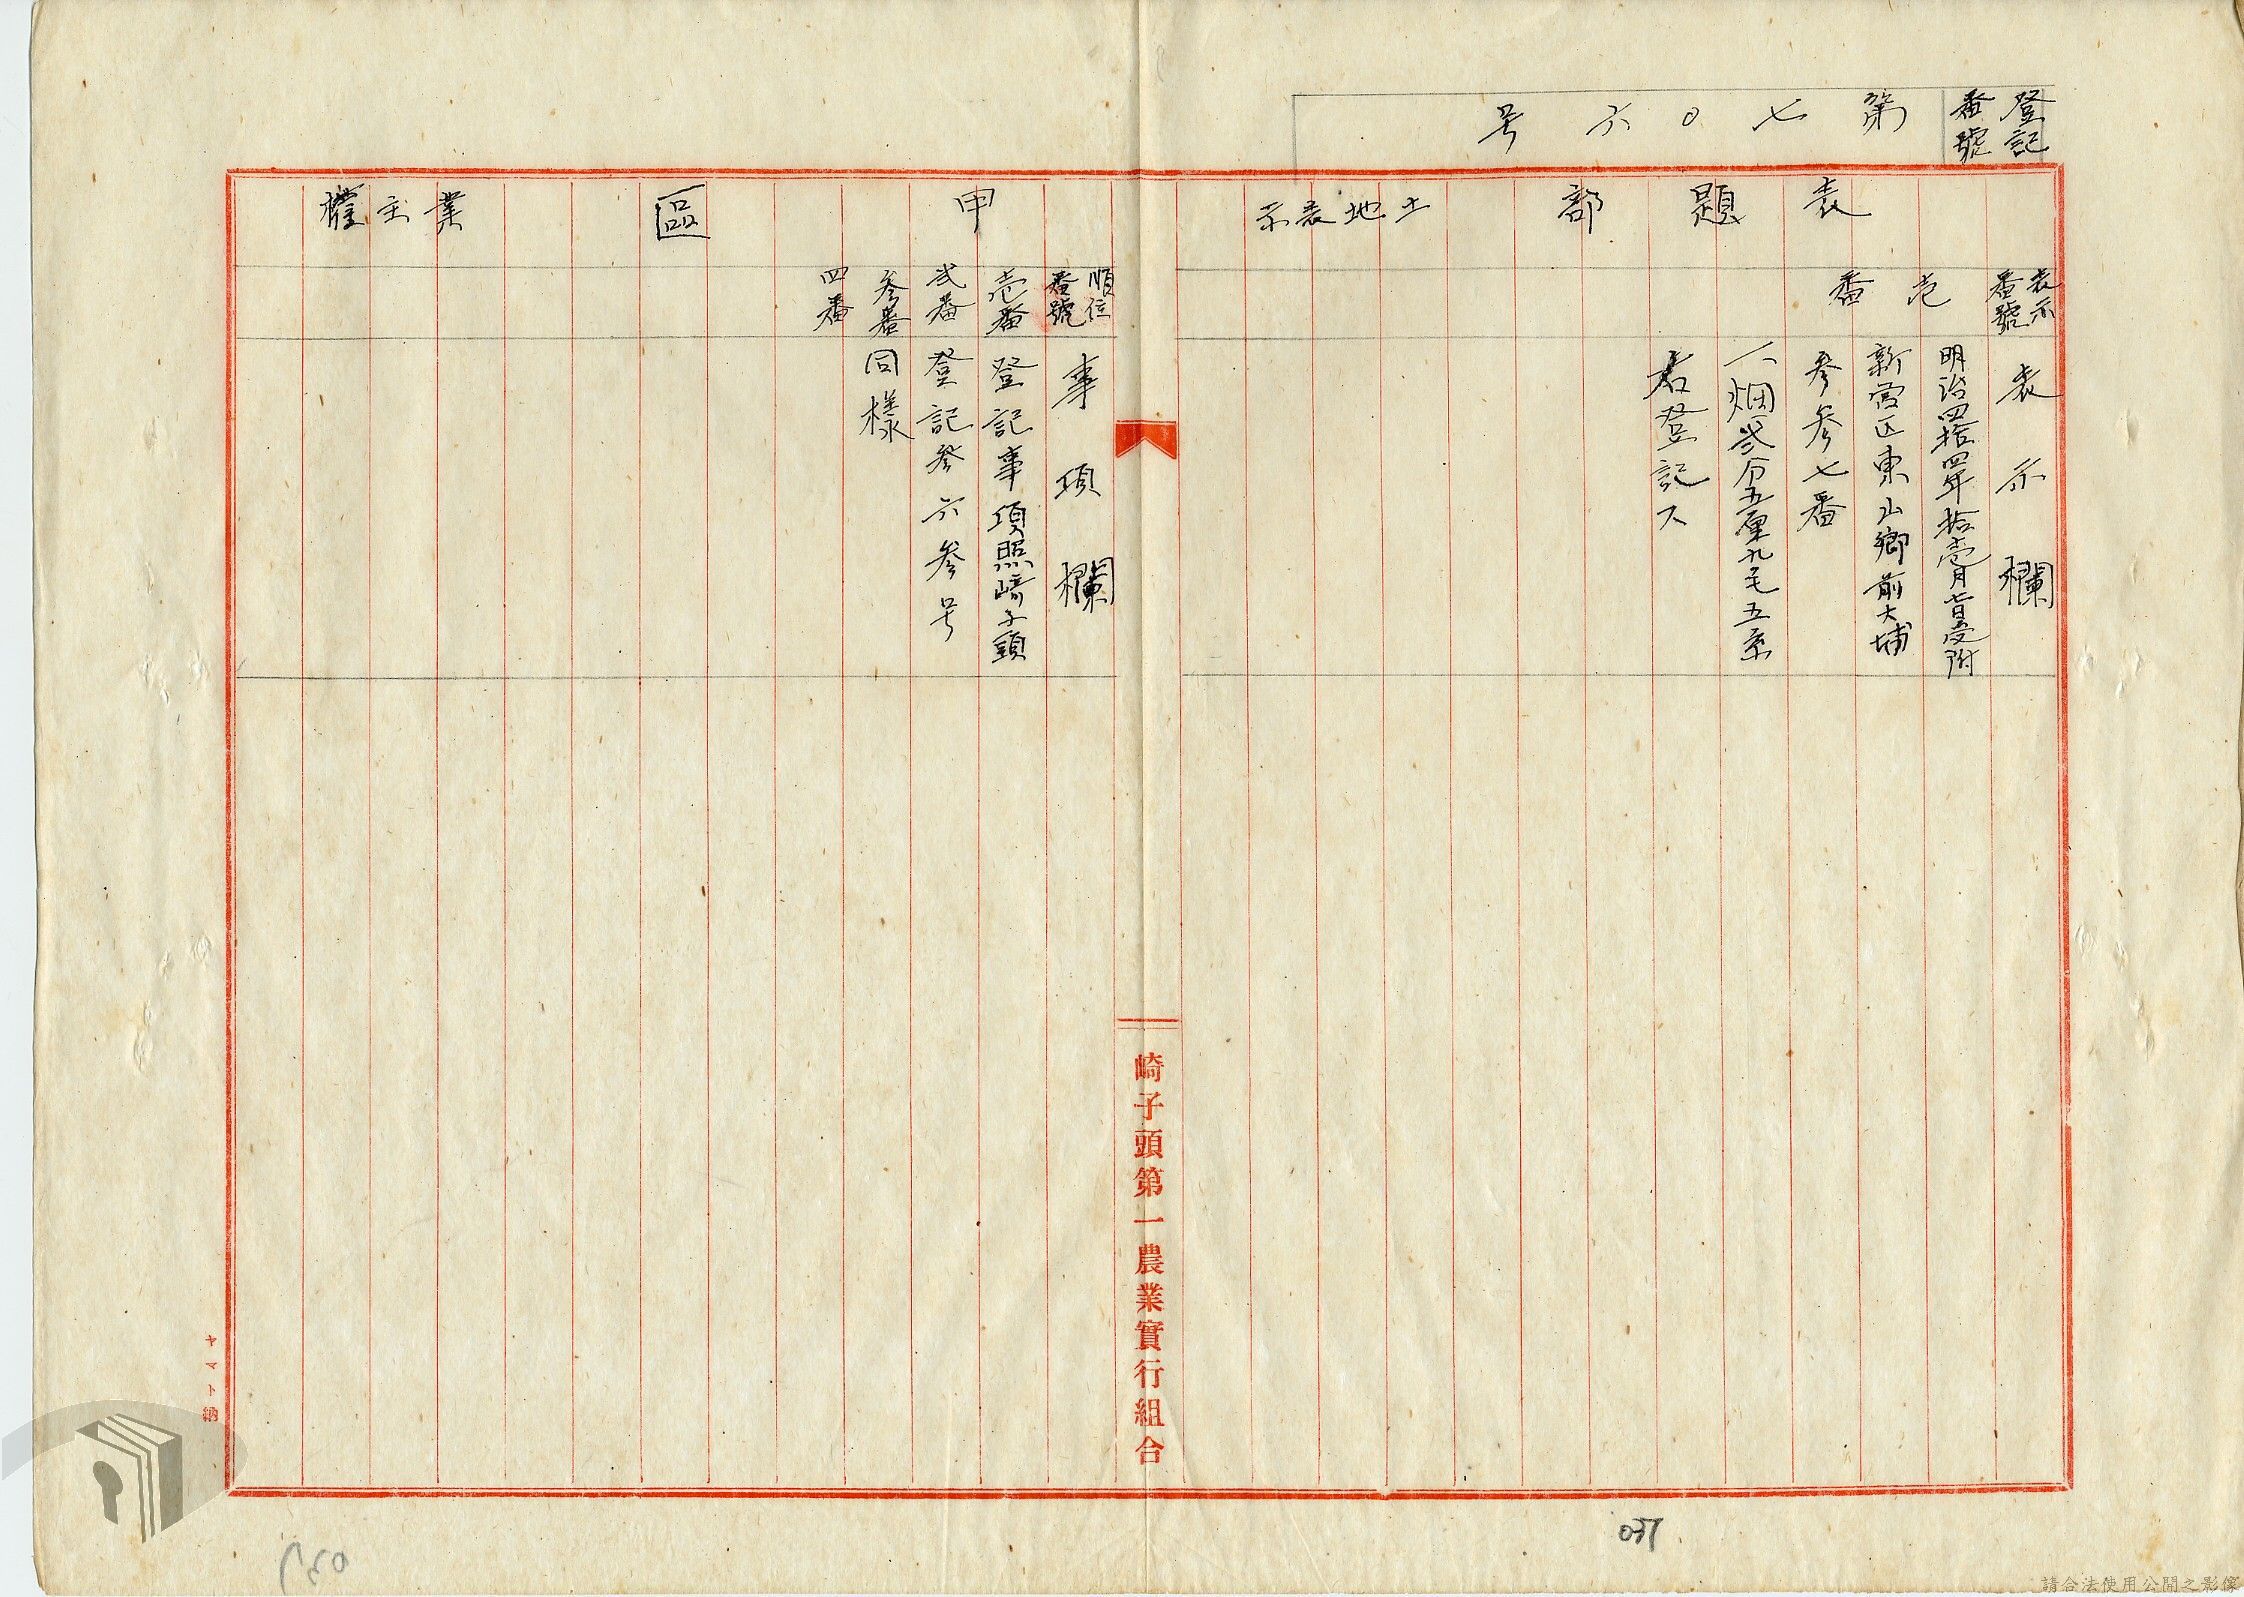 登記番號
第七〇六号
表題部 土地表示
表示番號
表示欄
壱番
明治四拾四年拾壱月七日受附
新営区東山郷前大埔
参参七番
一畑弐分五厘九毛五糸
右登記ス
崎子頭第一農業實行組合
甲區 業主權
順位番號
事項欄
壱番
登記事項照崎子頭
弐番
登記参六参号
参番
同樣
四番
ヤマト納
037
請合法使用公開之影像